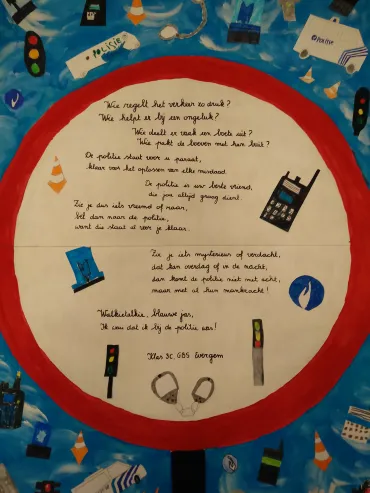 Politie
Politie
Wie regelt het verkeer zo druk?
Wie helpt er bij een ongeluk?
Wie deelt er vaak een boete uit?
Wie pakt de boeven met hun buit?
De politie staat voor u paraat,
klaar voor het oplossen van elke misdaad.
De politie is uw beste vriend,
die jou altijd graag dient.
Zie je dus iets vreemd of raar,
bel dan naar de politie,
want die staat al voor je klaar.
Zie je iets mysterieus of verdacht,
dat kan overdag of in de nacht,
dan komt de politie niet met acht,
maar met al hun mankracht!
Walkietalkie, blauwe jas,
Ik wou dat ik bij de politie was!
Klas 5C, GBS Evergem